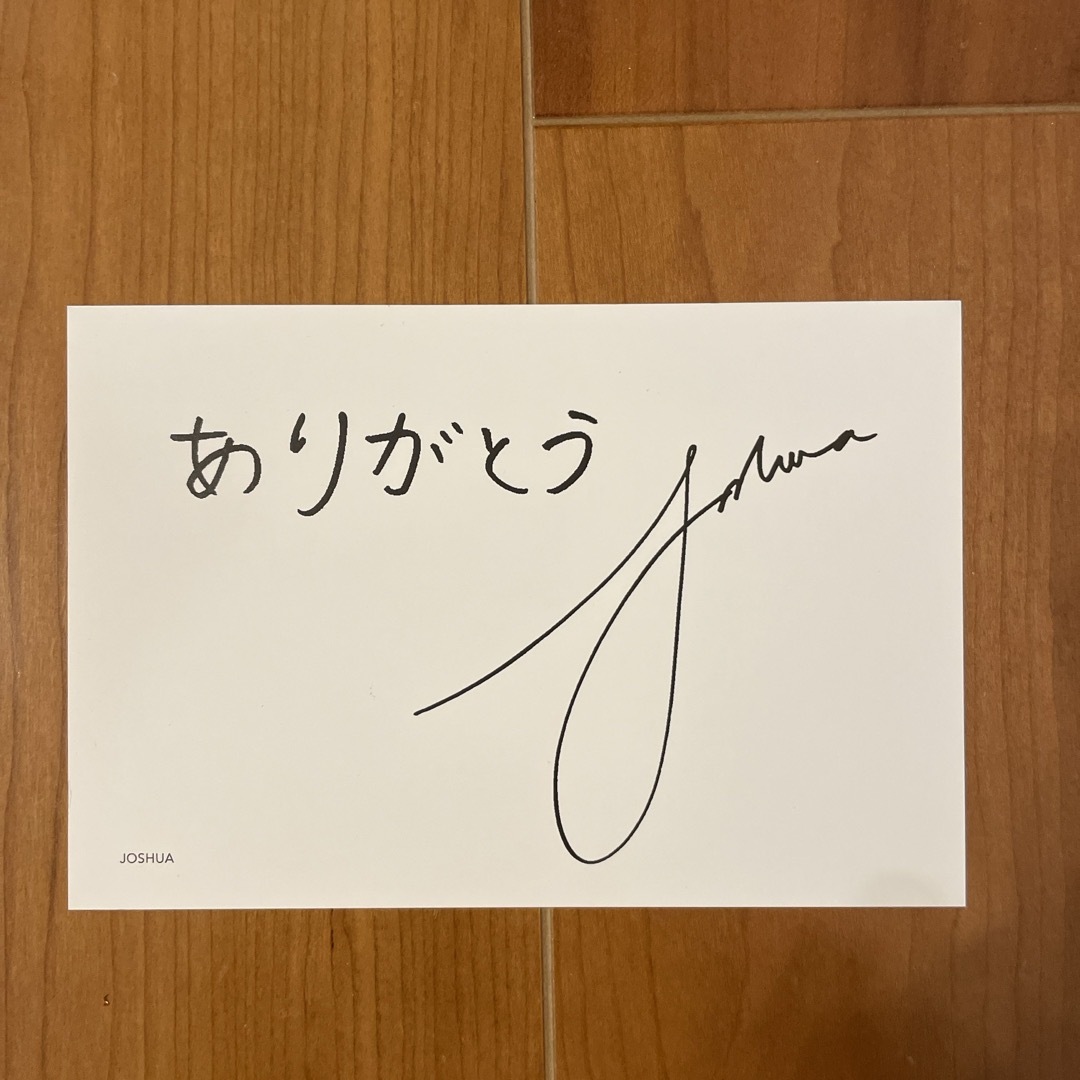 ありがとう
Joshua
JOSHUA